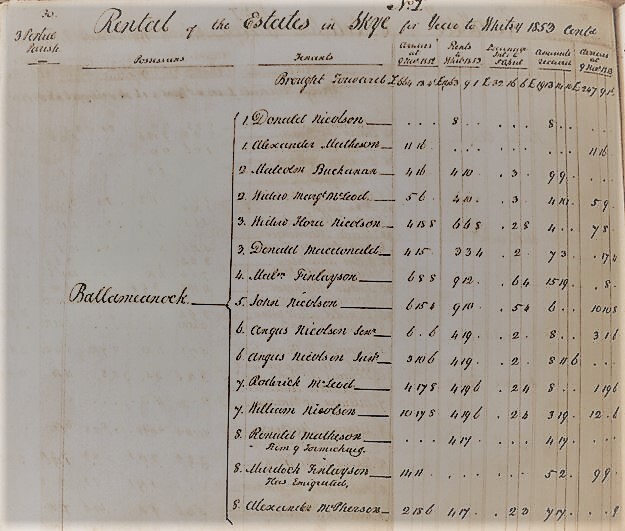 30 No. 1
Rental of the Estates in Skye for Year to Whity 1853 Contd
3 Portree Parish Possessions Tenants Arrears at 9 Novr 1852 Rents to Whity 1853 Amounts received Arrears at 9 Novr 1853
Brought Forward
1. Donald Nicolson . . . 8 . . . . . 8 . . . . .
1. Alexander Matheson 11 16 . . . . . . . . . . 11 16 .
2. Malcolm Buchanan 4 16 . 4 10 . . 3 . 9 9 . . . .
2. Widow Margt McLeod 5 6 . 4 10 . . 3 . 4 10 . 5 9 .
3. Widow Flora Nicolson 4 18 8 6 6 8 . 2 8 4 . . 7 8 .
3. Donald Macdonald 4 15 . 3 3 4 . 2 . 7 3 . . 17 4
Ballameanock
4. Malm Finlayson 6 8 8 9 12 . . 6 4 15 19 . . 8 .
5. John Nicolson 6 15 4 9 10 . . 5 4 6 . . 10 10 8
6. Angus Nicolson Senr 6 . 6 4 19 . . 2 . 8 . . 3 1 6
6 Angus Nicolson Junr 3 10 6 4 19 . . 2 . 8 11 6 . . .
7. Roderick McLeod 4 17 8 4 19 6 . 2 4 8 . . 1 19 6
7. William Nicolson 10 17 8 4 19 6 . 2 4 3 19 . 12 . 6
8. Ronald Matheson . . . 4 17 . . . . 4 17 . . . .
8. Murdoch Finlayson 14 11 . . . . . . . 5 2 . 9 9 .
Has Emigrated,
8. Alexander McPherson 2 18 6 4 17 . . 2 3 7 17 . . . 9